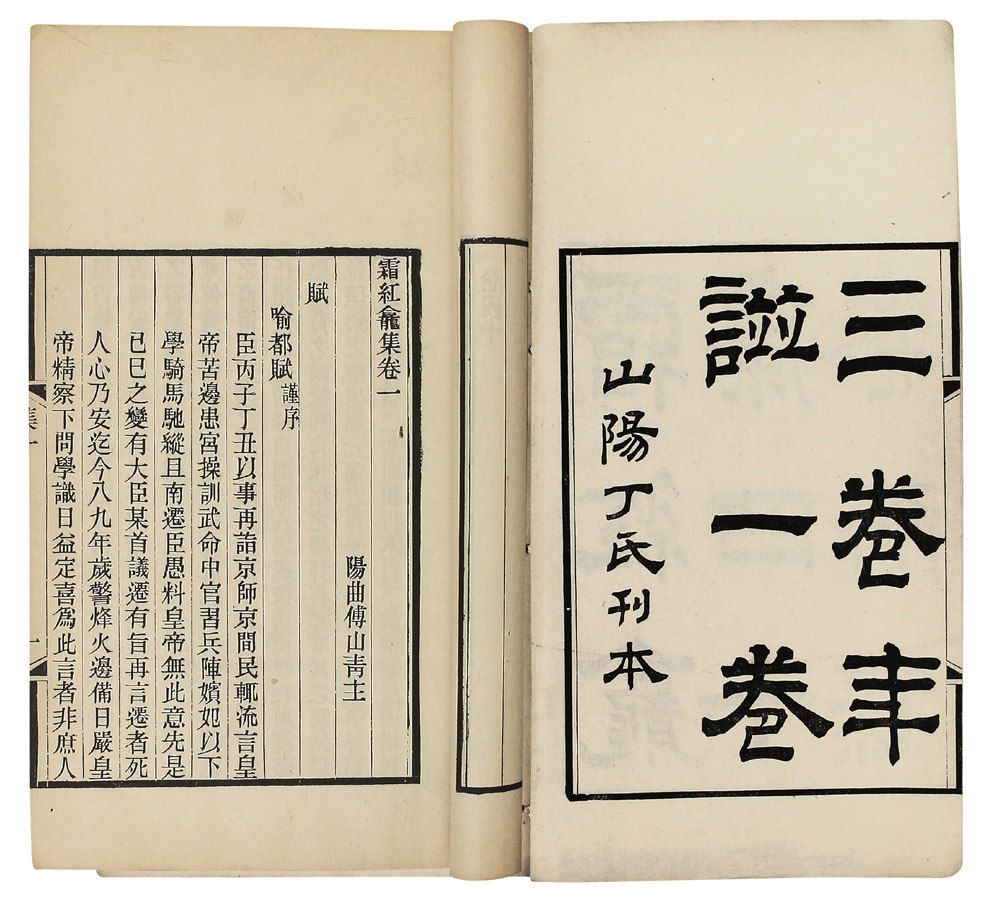 三卷年
譜一卷
山陽丁氏刊本
霜紅龕集卷一
陽曲傅山青主
賦
喻都賦謹序
臣丙子丁丑以事再詣京師京間民輒流言皇
帝苦邊患宮操訓武命中官習兵陣嬪妃以下
學騎馬馳縱且南遷臣愚料皇帝無此意先是
已巳之變有大臣某首議遷有旨再言遷者死
人心乃安迄今八九年歲警烽火邊備日嚴皇
帝精察下問學識日益定喜爲此言者非庶人
集一
一